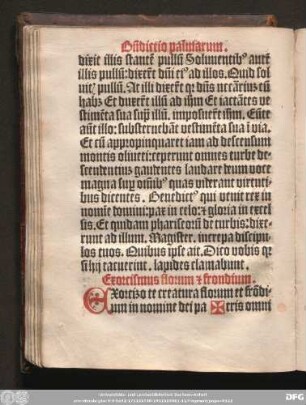 Bñdictio palmarum.
dixit illis stantẽ pullũ Soluentibꝰ autẽ
illis pullũ: dixerũt dñi eiꝰ ad illos. Quid sol
uitꝭ pullũ. At illi dixerũt qꝛ dñs necariũs eũ
habꝫ Et duxerũt illũ ad ihm Et iactãtes ve
stimẽta sua sup illũ. imposuerũt ihm. Eũte
aũt illo: substernebãt vestimẽta sua ĩ via.
Et cũ appropinquaret iam ad descensum
montis oliueti: ceperunt omnes turbe de
scendentiuʒ gaudentes laudare deum voce
magna sup oĩbꝰ quas viderant virtuti
bus dicentes. Benedictꝰ qui venit rex in
nomĩe domini: pax in celo: ⁊ gloria in excel
sis. Et quidam phariseorũ de turbis: dixe
runt ad illum. Magister. increpa discipu
los tuos. Quibus ipse ait. Dico vobis qꝛ
si hij tacuerint. lapides clamabunt.
Exorcismus florum ⁊ frondium.
Exorizo te creatura florum et frõdi
um in nomine dei pa ✠ tris omni